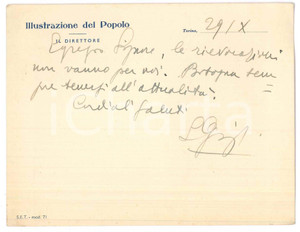 Illustrazione del Popolo
IL DIRETTORE
Torino, 29/X
Egregio Signore, le rievocazioni
non vanno per noi. Bisogna sem=
pre tenersi all'attualità.
Cordiali saluti
S.E.T. - mod. 71